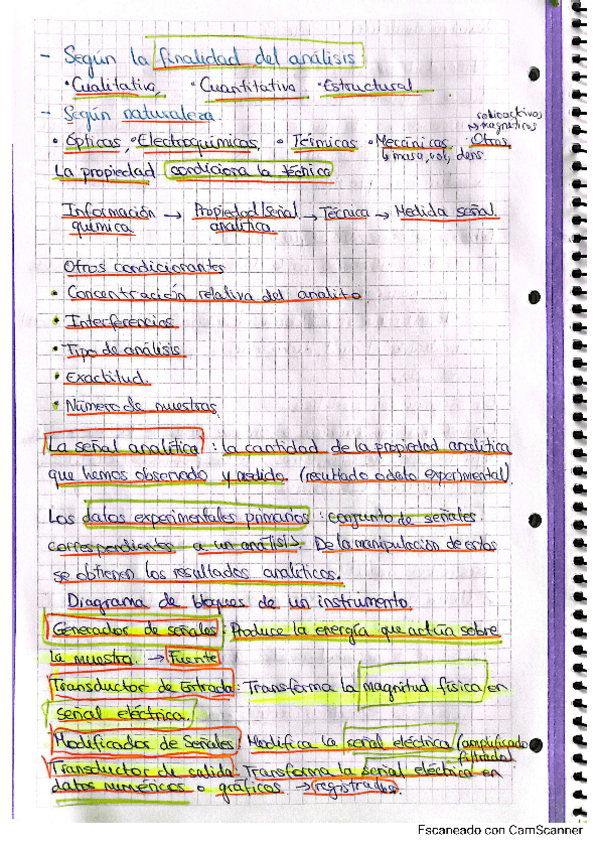 - Según la finalidad del análisis
• Cualitativa • Cuantitativa • Estructural
- Según naturaleza
radioactivos
→ magnéticos
• Ópticas • Electroquímicas • Térmicas • Mecánicas • Otras
↳ masa, vol, dens.
La propiedad condiciona la técnica
Información → Propiedad/señal → Técnica → Medida señal
química analítica.
Otros condicionantes
• Concentración relativa del analito
• Interferencias
• Tipo de análisis
• Exactitud.
• Número de muestras
La señal analítica : la cantidad de la propiedad analítica
que hemos observado y medido. (resultado o dato experimental)
Los datos experimentales primarios : conjunto de señales
correspondientes a un análisis. De la manipulación de estos
se obtienen los resultados analíticos.
Diagrama de bloques de un instrumento
Generador de señales : Produce la energía que actúa sobre
la muestra. → Fuente
Transductor de Entrada : Transforma la magnitud física en
señal eléctrica.
Modificador de Señales : Modifica la señal eléctrica (amplificado
filtrado)
Transductor de salida : Transforma la señal eléctrica en
datos numéricos o gráficos → (registrador)
Escaneado con CamScanner